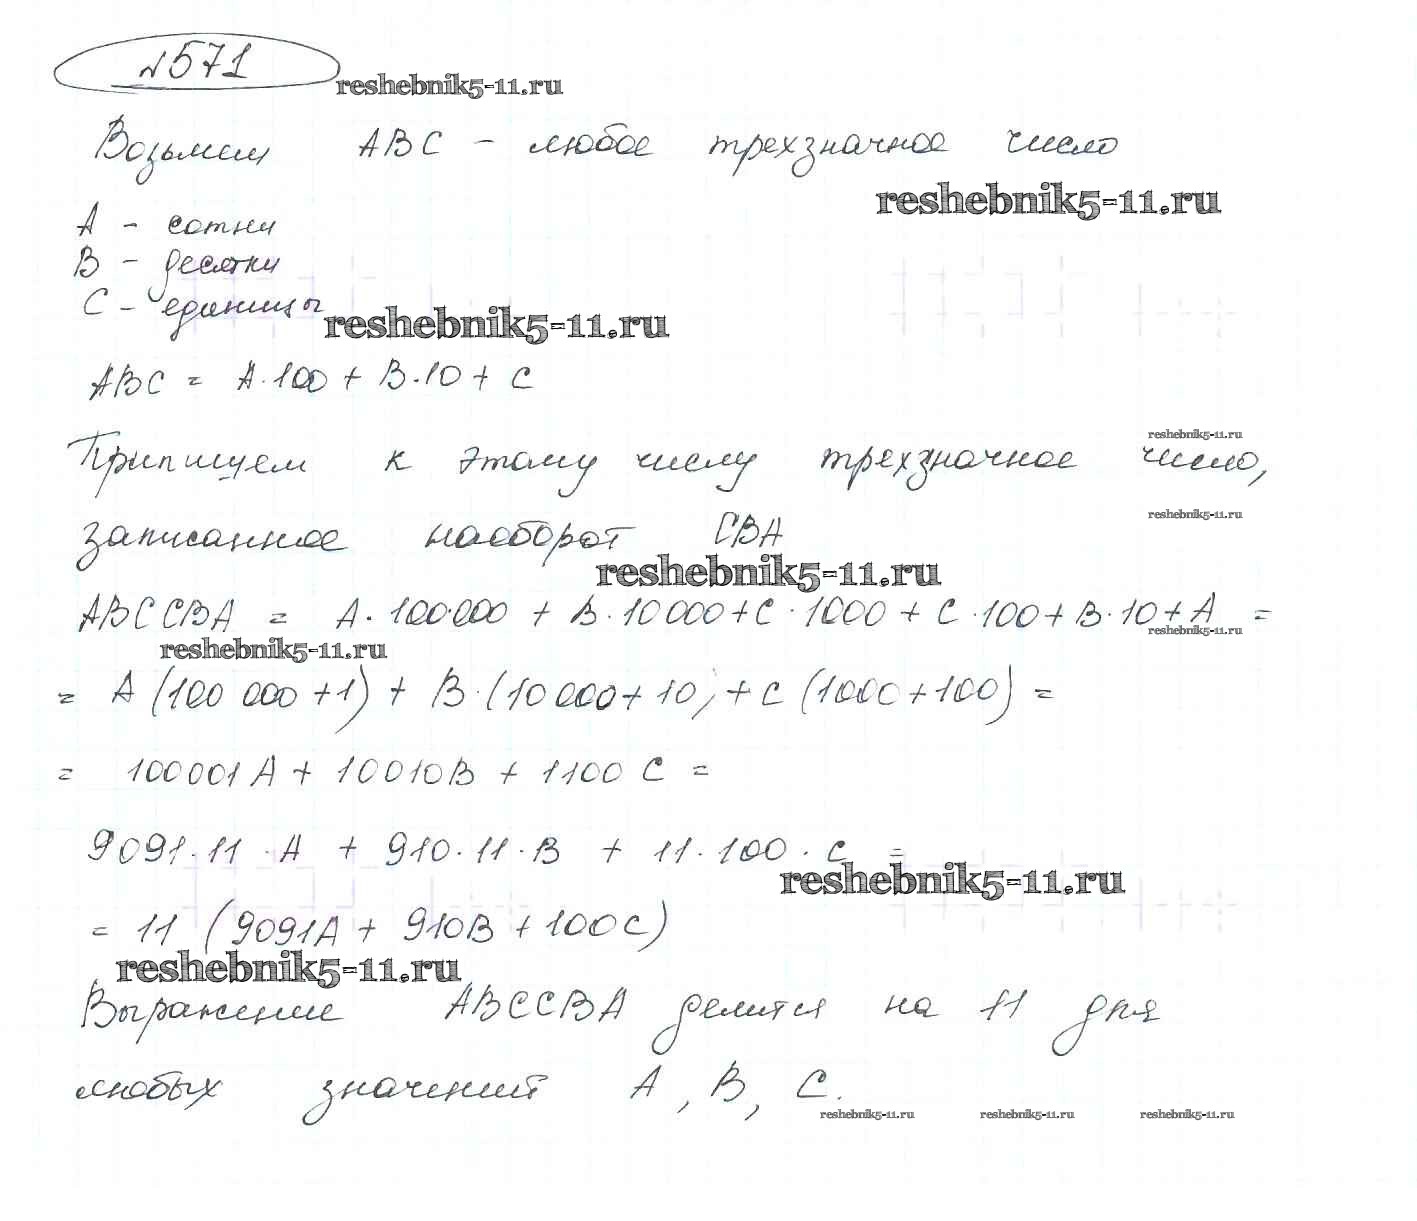 №571
reshebnik5-11.ru
Возьмем ABC - любое трехзначное число
reshebnik5-11.ru
A - сотни
B - десятки
C - единицы
reshebnik5-11.ru
ABC = A·100 + B·10 + C
reshebnik5-11.ru
Припишем к этому числу трехзначное число,
reshebnik5-11.ru
записанное наоборот CBA
reshebnik5-11.ru
ABCCBA = A·100000 + B·10000 + C·1000 + C·100 + B·10 + A =
reshebnik5-11.ru
reshebnik5-11.ru
= A (100 000 + 1) + B·(10 000 + 10) + C (1000 + 100) =
= 100001 A + 10010 B + 1100 C =
9091·11·A + 910·11·B + 11·100·C =
reshebnik5-11.ru
= 11 (9091A + 910B + 100C)
reshebnik5-11.ru
Выражение ABCCBA делится на 11 для
любых значений A, B, C.
reshebnik5-11.ru reshebnik5-11.ru reshebnik5-11.ru